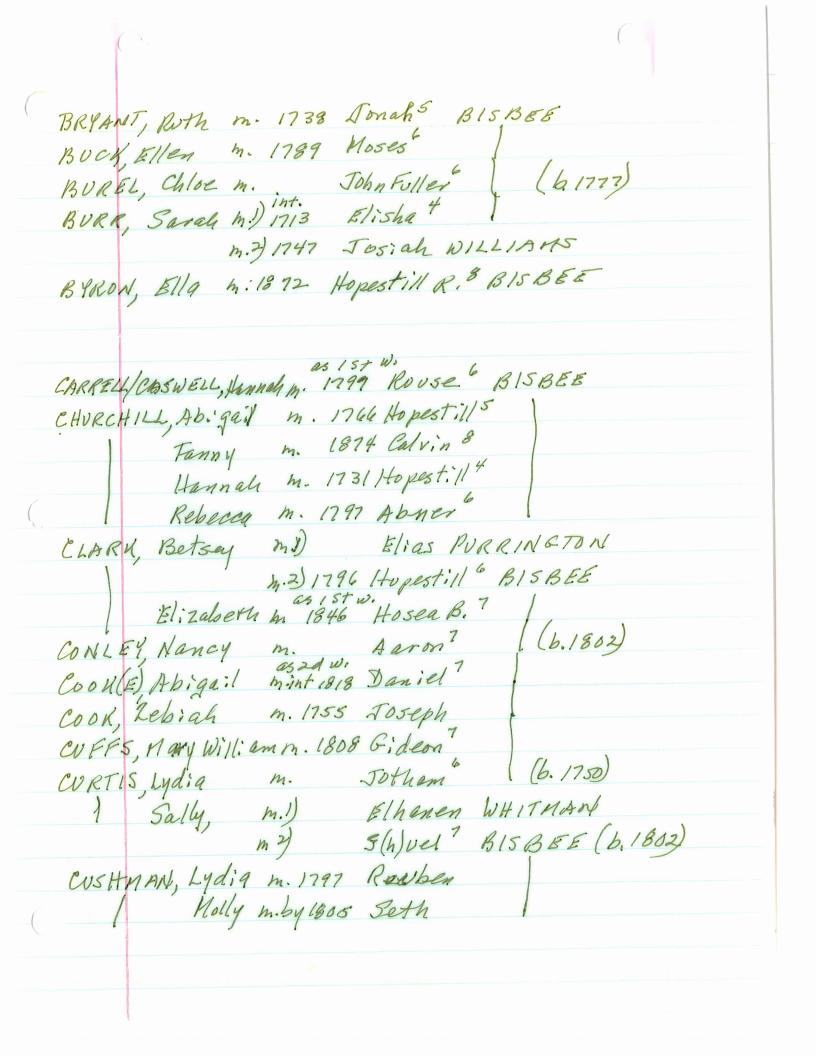 BRYANT, Ruth m. 1738 Jonah⁵ BISBEE
BUCK, Ellen m. 1789 Moses⁶
BUREL, Chloe m. John Fuller⁶ (b. 1777)
int.
BURR, Sarah m. 1) 1713 Elisha⁴
m. 2) 1747 Josiah WILLIAMS
BYRON, Ella m. 1872 Hopestill R.⁸ BISBEE
as 1st w.
CARRELL/CASWELL, Hannah m. 1799 Rouse⁶ BISBEE
CHURCHILL, Abigail m. 1766 Hopestill⁵
Fanny m. 1874 Calvin⁸
Hannah m. 1731 Hopestill⁴
Rebecca m. 1797 Abner⁶
CLARK, Betsey m 1) Elias PURRINGTON
m. 2) 1796 Hopestill⁶ BISBEE
as 1st w.
Elizabeth m 1846 Hosea B.⁷
CONLEY, Nancy m. Aaron⁷ (b. 1802)
as 2d w.
COOK(E), Abigail m int 1818 Daniel⁷
COOK, Zebiah m. 1755 Joseph
CUFFS, Mary William m. 1808 Gideon⁷
CURTIS, Lydia m. Jotham⁶ (b. 1750)
Sally, m. 1) Elhanen WHITMAN
m 2) S(h)uel⁷ BISBEE (b. 1802)
CUSHMAN, Lydia m. 1797 Reuben
Molly m. by 1805 Seth